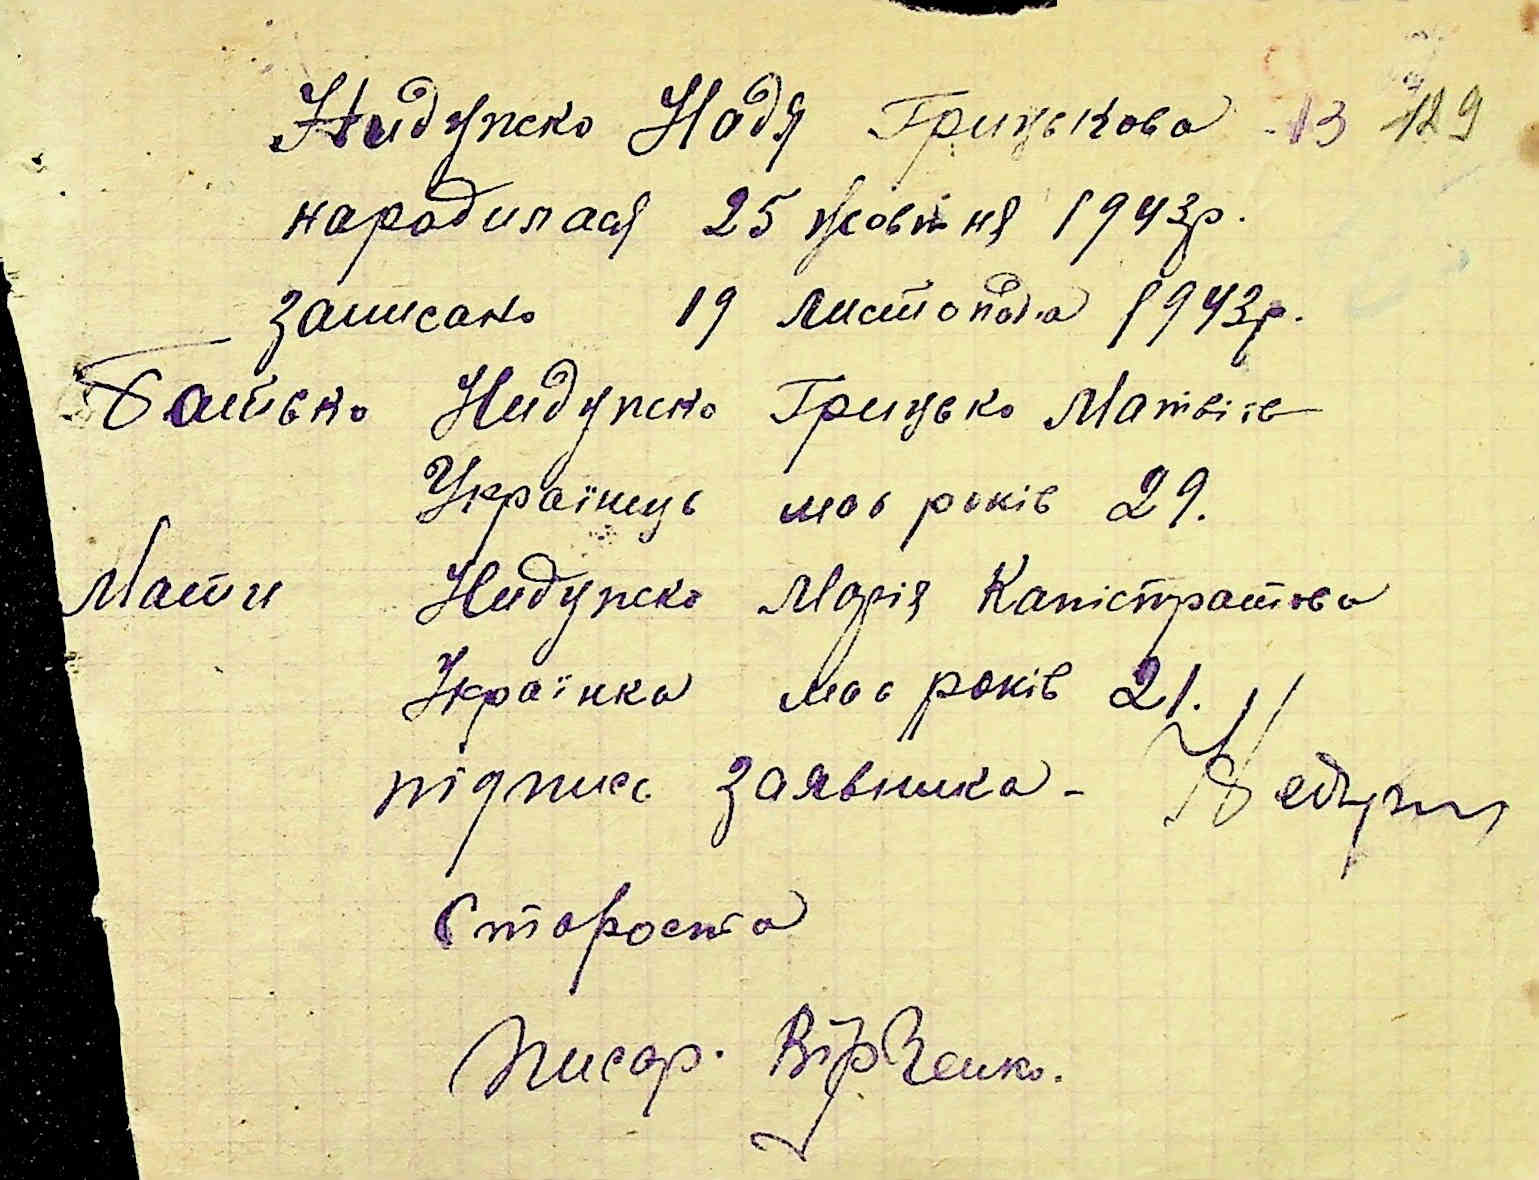 Нидупско Надя Грицькова 13 129
народилася 25 жовтня 1943р.
записано 19 листопада 1943р.
Батько Нидупско Грицько Матвіїв
Українець має років 29.
Мати Нидупско Марія Капістратова
Українка має років 21.
підпис заявника -
Староста
Писар. Вірченко.